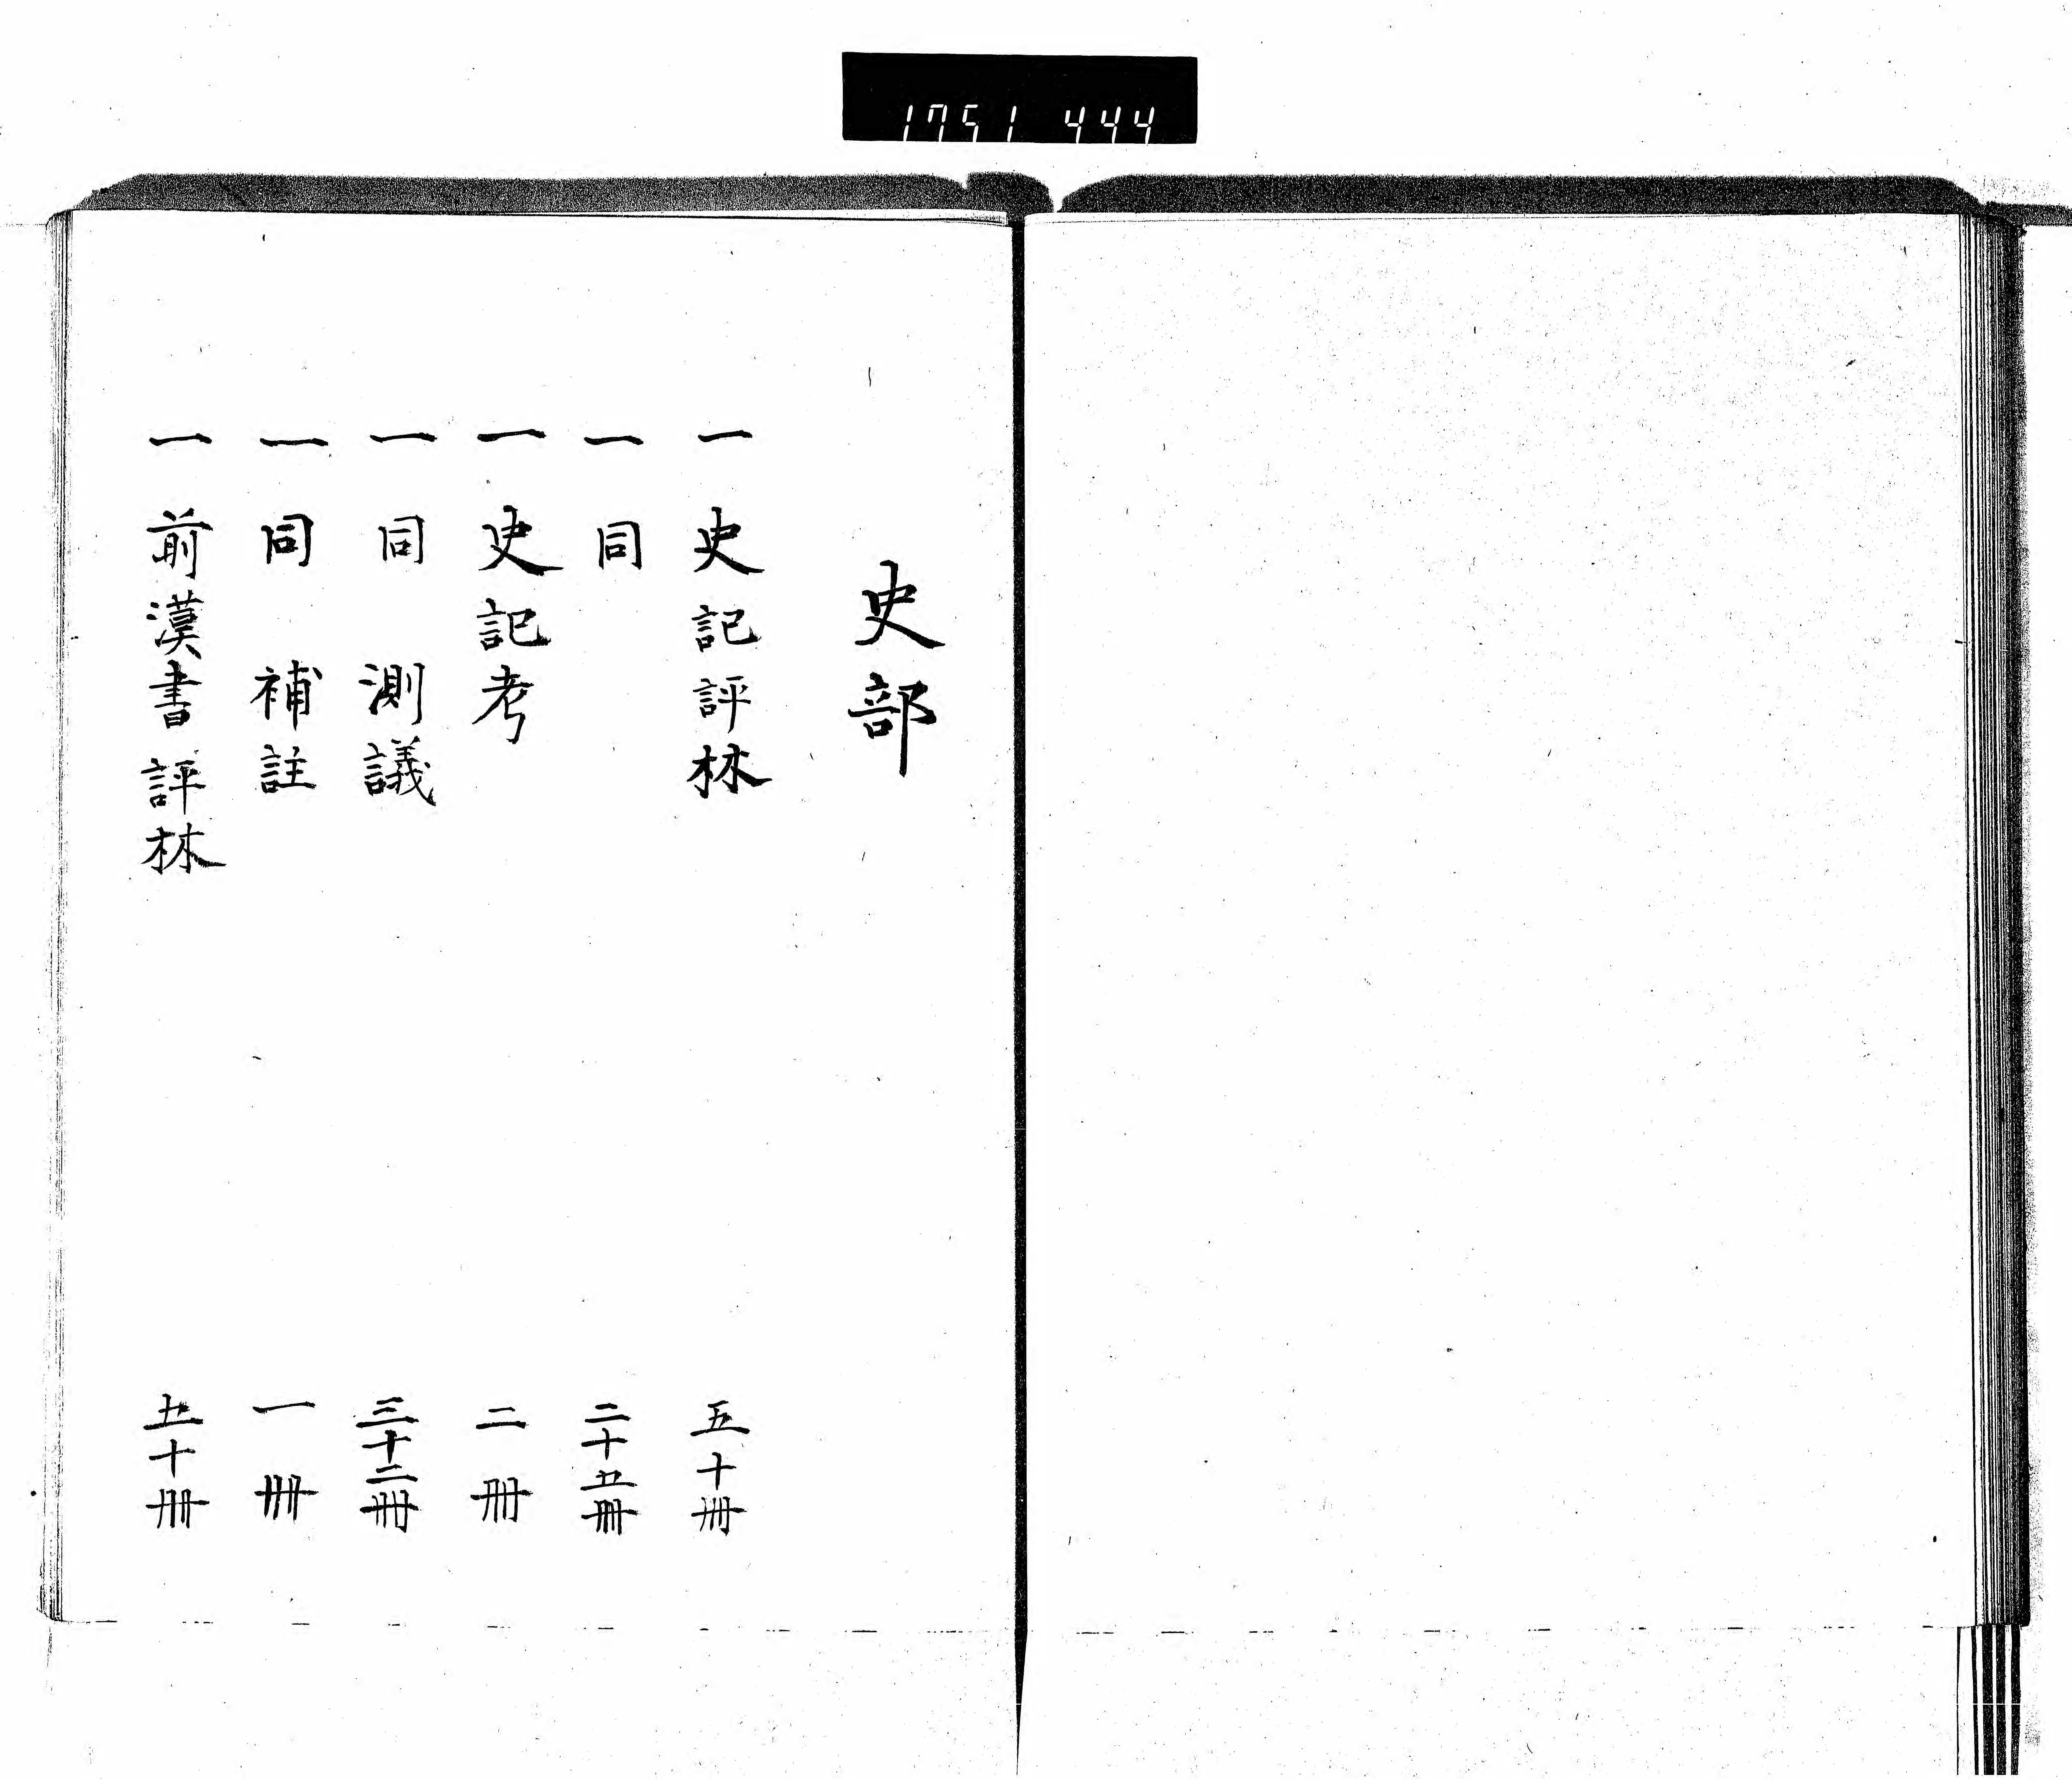 1751 444
史部
一 史記評林 五十冊
一 同 二十五冊
一 史記考 二冊
一 同 測議 三十二冊
一 同 補註 一冊
一 前漢書評林 五十冊